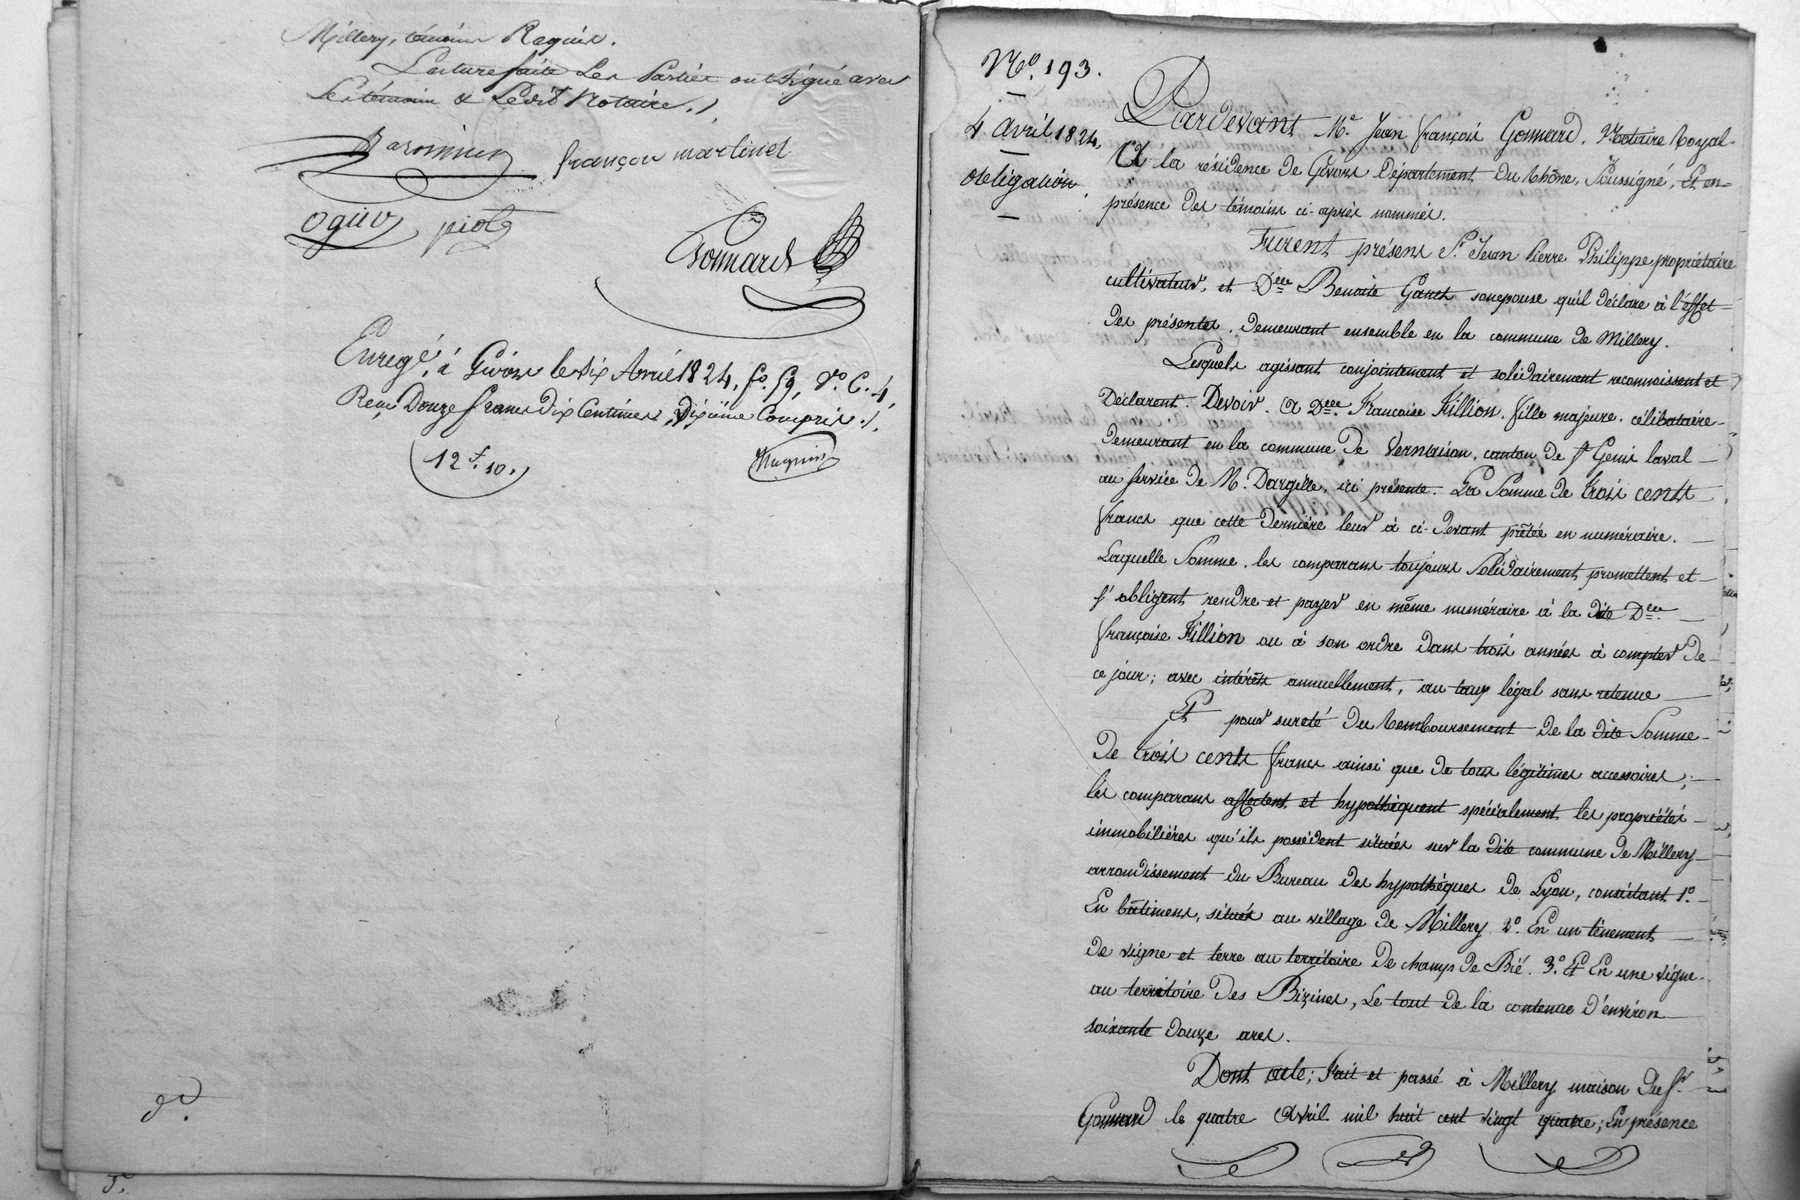 Millery, témoins Requis.
Lecture faite Les Parties ont Signé avec
Les témoins & Ledit Notaire ./.
françois martinet
ogier piot
Gonnard
Enregé. à Givors le Six Avril 1824, fo. 59, Vo. C. 4,
Reçu Douze francs Dix Centimes, Dixième Compris ./.
12f. 10.
No. 193.
4. Avril 1824.
obligation.
Pardevant Me. Jean françois Gonnard, Notaire Royal
A la résidence de Givors Département du Rhône, Soussigné, Et en
présence des témoins ci-après nommés.
Furent présens Sr. Jean Pierre Philippe propriétaire
cultivateur, et Delle Benoite son epouse qu'il déclare à l'effet
des présentes, demeurant ensemble en la commune de Millery.
Lesquels agissant conjointement et solidairement reconnoissent et
Déclarent Devoir. A Delle. Francoise Fillion, fille majeure, célibataire
demeurant en la commune de Vernaison, canton de St Genis laval
au service de Mr. Dargille, ici présente. La Somme de trois cents
francs que cette dernière leur à ci-devant prêtée en numéraire.
Laquelle Somme, les comparans toujours Solidairement promettent et
s'obligent rendre et payer en même numéraire à la dite Delle.
françoise Fillion ou à son ordre dans trois années à compter de
ce jour; avec intérêts annuellement, au taux légal sans retenue
Et pour sureté du remboursement de la dite Somme
De trois cents francs ainsi que de tous légitimes accessoires;
les comparans affectent et hypothèquent spécialement les propriétés
immobilières qu'ils possèdent situées sur la dite commune de Millery
arrondissement du Bureau des hypothèques de Lyon, consistant 1o.
En bâtimens, situés au village de Millery 2o. En un tènement
de vigne et terre au territoire de champ de Bié. 3o. Et En une vigne
au territoire des Bizines, Le tout de la contenue d'environ
soixante douze ares.
Dont acte; Fait et passé à Millery maison du Sr.
Gonnard le quatre Avril mil huit cent vingt quatre; En présence